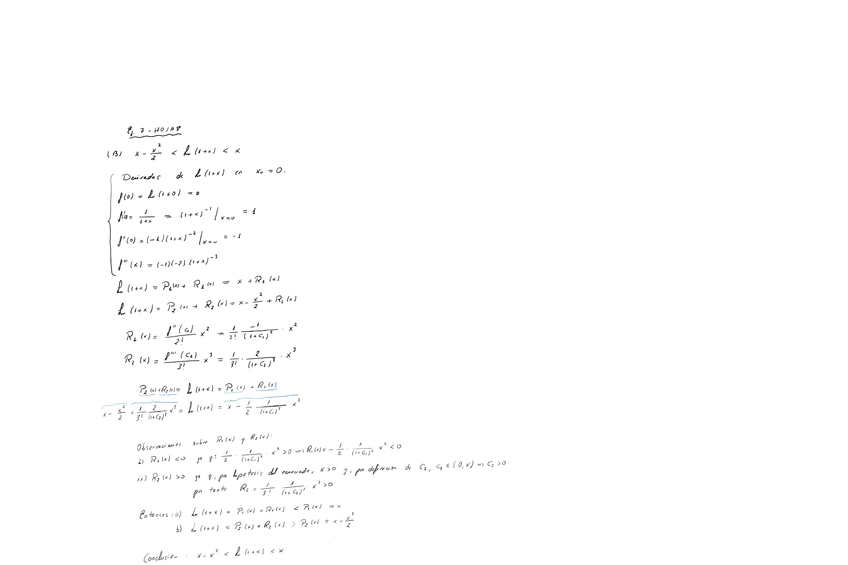 Ej 7 - HOJA 8
(B) x - x²/2 < ln(1+x) < x
Derivadas de ln(1+x) en x₀ = 0.
f(0) = ln(1+0) = 0
f'(0) = 1/(1+x) = (1+x)⁻¹ |ₓ₌₀ = 1
f''(0) = (-1)(1+x)⁻² |ₓ₌₀ = -1
f'''(x) = (-1)(-2)(1+x)⁻³
ln(1+x) = P₁(x) + R₁(x) = x + R₁(x)
ln(1+x) = P₂(x) + R₂(x) = x - x²/2 + R₂(x)
R₁(x) = f''(c₁)/2! x² = 1/2! · -1/(1+c₁)² · x²
R₂(x) = f'''(c₂)/3! x³ = 1/3! · 2/(1+c₂)³ · x³
P₂(x) + R₂(x) = ln(1+x) = P₁(x) + R₁(x)
x - x²/2 + 1/3! 2/(1+c₂)³ x³ = ln(1+x) = x - 1/2 1/(1+c₁)² x²
Observaciones sobre R₁(x) y R₂(x).
i) R₁(x) < 0 ya q: 1/2 · 1/(1+c₁)² · x² > 0 ⇒ R₁(x) = - 1/2 · 1/(1+c₁)² x² < 0
ii) R₂(x) > 0 ya q, por hipótesis del enunciado, x > 0 y, por definición de c₂, c₂ ∈ (0,x) ⇒ c₂ > 0
por tanto R₂ = 1/3! 1/(1+c₂)³ x³ > 0
Entonces: a) ln(1+x) = P₁(x) + R₁(x) < P₁(x) = x
b) ln(1+x) = P₂(x) + R₂(x) > P₂(x) = x - x²/2
Conclusión: x - x² < ln(1+x) < x